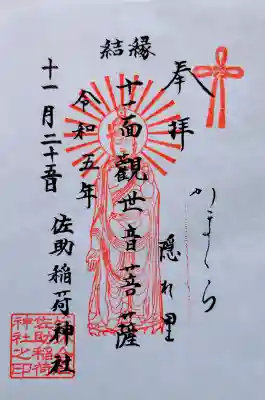 奉拝
かまくら
隠れ里
縁結
十一面観世音菩薩
令和五年
十一月二十五日
佐助稲荷神社
佐助稲荷
神社之印